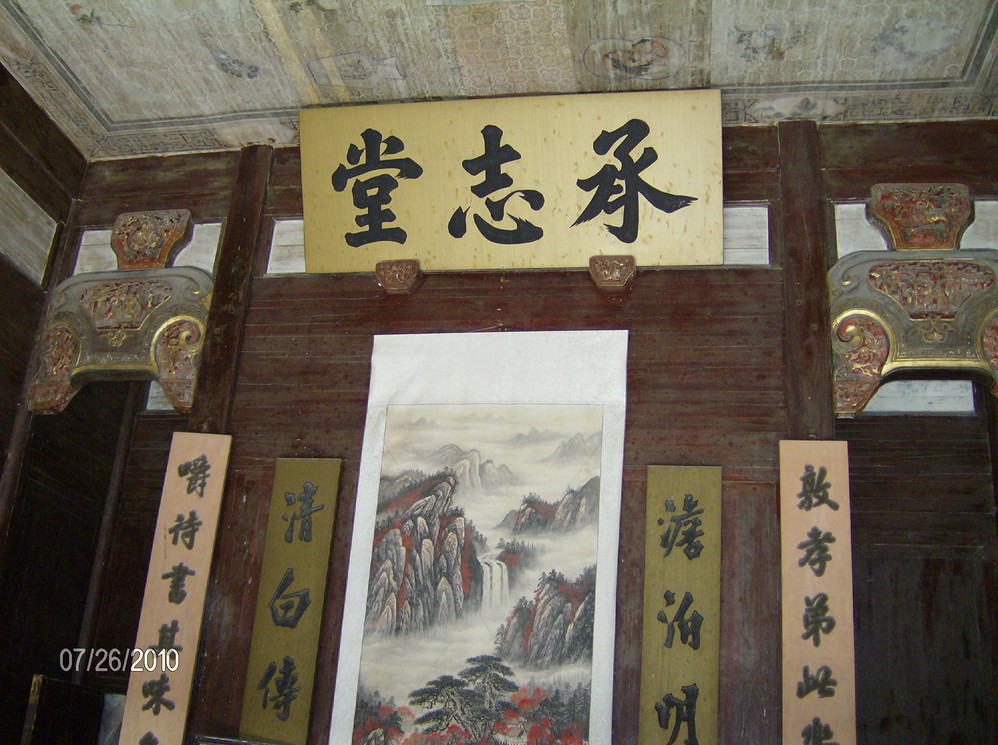 承志堂
敦孝弟此
澹泊明
清白傳
嚼詩書其味
07/26/2010